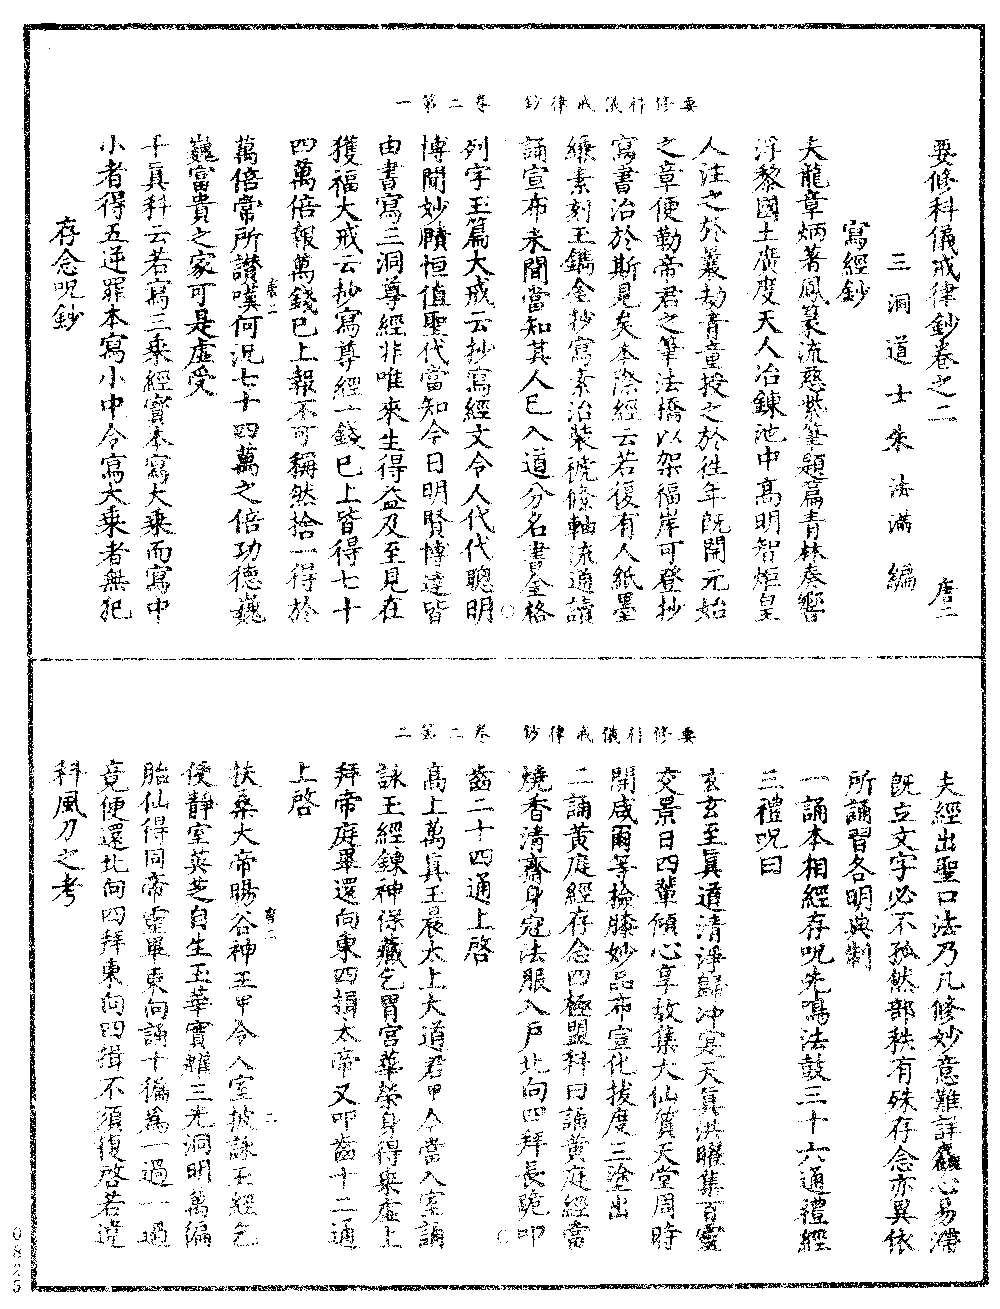 要修科儀戒律鈔 卷二第一
要修科儀戒律鈔卷之二 唐二
三洞道士朱法滿編
寫經鈔
夫龍章炳著鳳篆流慈紫筆題篇青林奏響
浮黎國土廣度天人冶鍊池中高明智炬皇
人注之於曩劫青童授之於往年既開元始
之章便勤帝君之筆法橋以架福岸可登抄
寫書治於斯見矣本際經云若復有人紙墨
縑素刻玉鐫金抄寫素治裝褫絛軸流通讀
誦宣布未聞當知其人已入道分名書金格
列字玉篇大戒云抄寫經文令人代代聰明
博聞妙賾恒值聖代當知今日明賢博達皆
由書寫三洞尊經非唯來生得益及至見在
獲福大戒云抄寫尊經一錢已上皆得七十
四萬倍報萬錢已上報不可稱然捨一得於
萬倍常所讚嘆何況七十四萬之倍功德巍
巍富貴之家可是虛受
千真科云若寫三乘經實本寫大乘而寫中
小者得五逆罪本寫小中令寫大乘者無犯
存念呪鈔
要修科儀戒律鈔 卷二第二
夫經出聖口法乃凡修妙意難詳麤心易滯
既立文字必不孤然部秩有殊存念亦異依
所誦習各明典制
一誦本相經存呪先鳴法鼓三十六通禮經
三禮呪曰
玄玄至真道清淨歸沖寂天真洪曜集百靈
交景日四輩傾心享故集大仙質天堂周時
開咸爾等捻膝妙品布宣化拔度三塗出
二誦黃庭經存念四極盟科曰誦黃庭經當
燒香清齋身冠法服入戶北向四拜長跪叩
齒二十四通上啓
高上萬真玉晨太上大道君甲今當入室誦
詠玉經鍊神保藏乞胃宮華榮身得乘虛上
拜帝庭畢還向東四揖太帝又叩齒十二通
上啓
扶桑大帝暘谷神王甲今入室披詠玉經乞
使靜室英芝自生玉華寶耀三光洞明萬編
胎仙得同帝靈畢東向誦十徧為一過一過
竟便還北向四拜東向四揖不須復啓若違
科風刀之考
0825